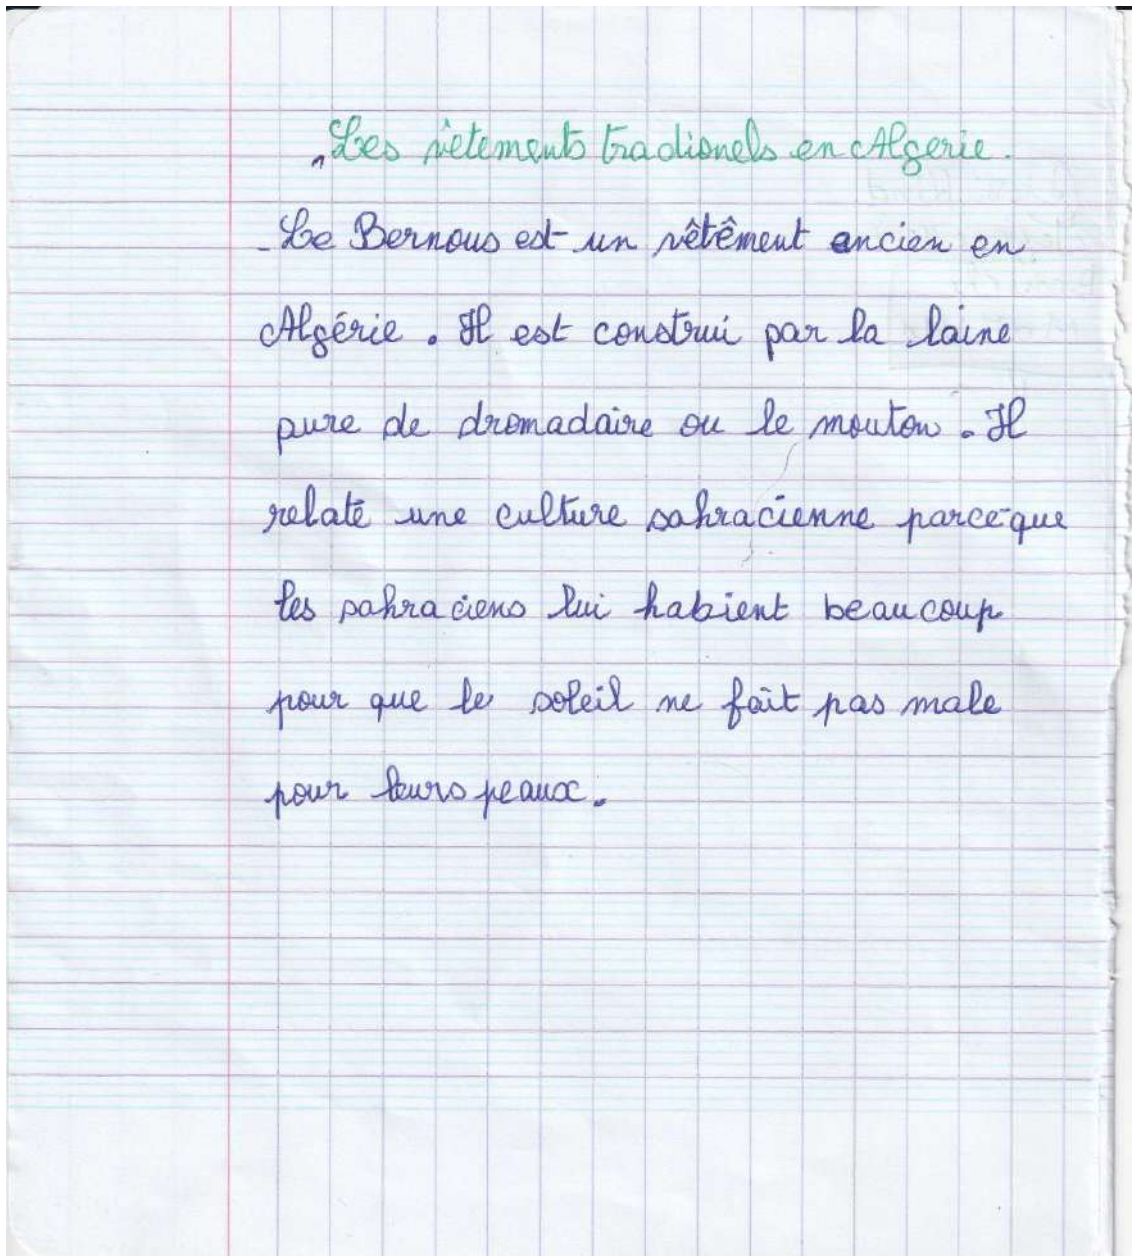 Les vêtements tradionels en Algerie.
- Le Bernous est un vêtêment ancien en
Algérie. Il est construi par la laine
pure de dromadaire ou le mouton. Il
relate une culture sahracienne parce que
les sahraciens lui habient beaucoup
pour que le soleil ne fait pas male
pour leurs peaux.